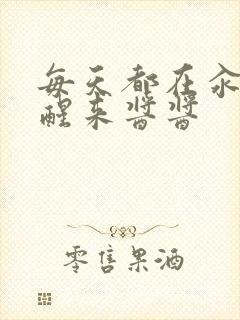 每天都在汆
醒来酱酱
零售果酒